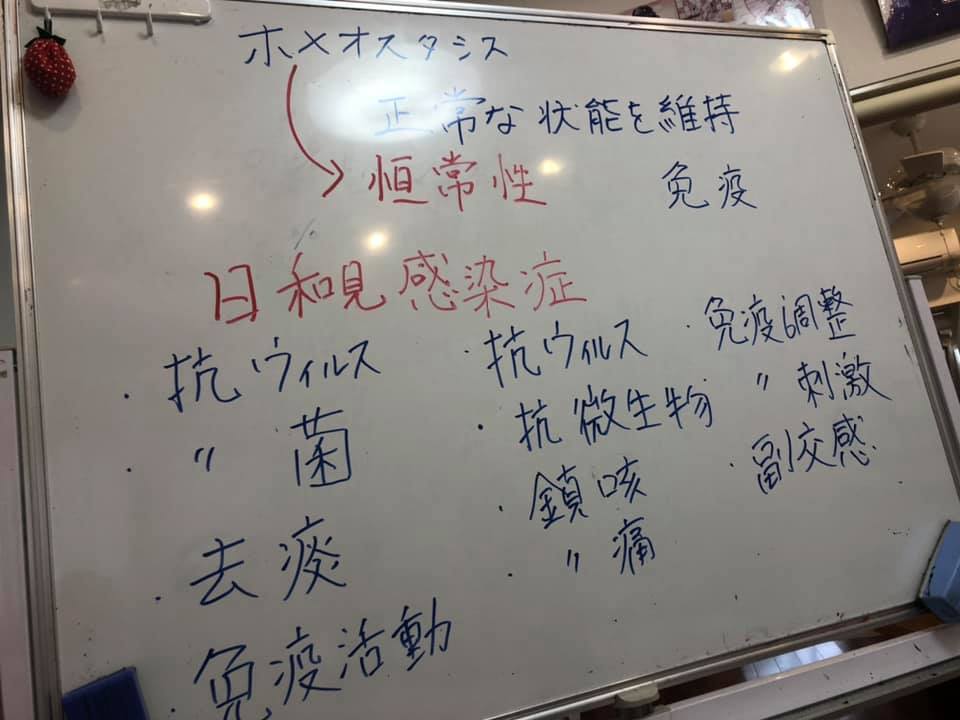 ホメオスタシス
正常な状能を維持
恒常性
免疫
日和見感染症
・抗ウィルス
・〃菌
・去痰
免疫活動
・抗ウィルス
・抗微生物
・鎮咳
・〃痛
・免疫調整
〃刺激
・副交感